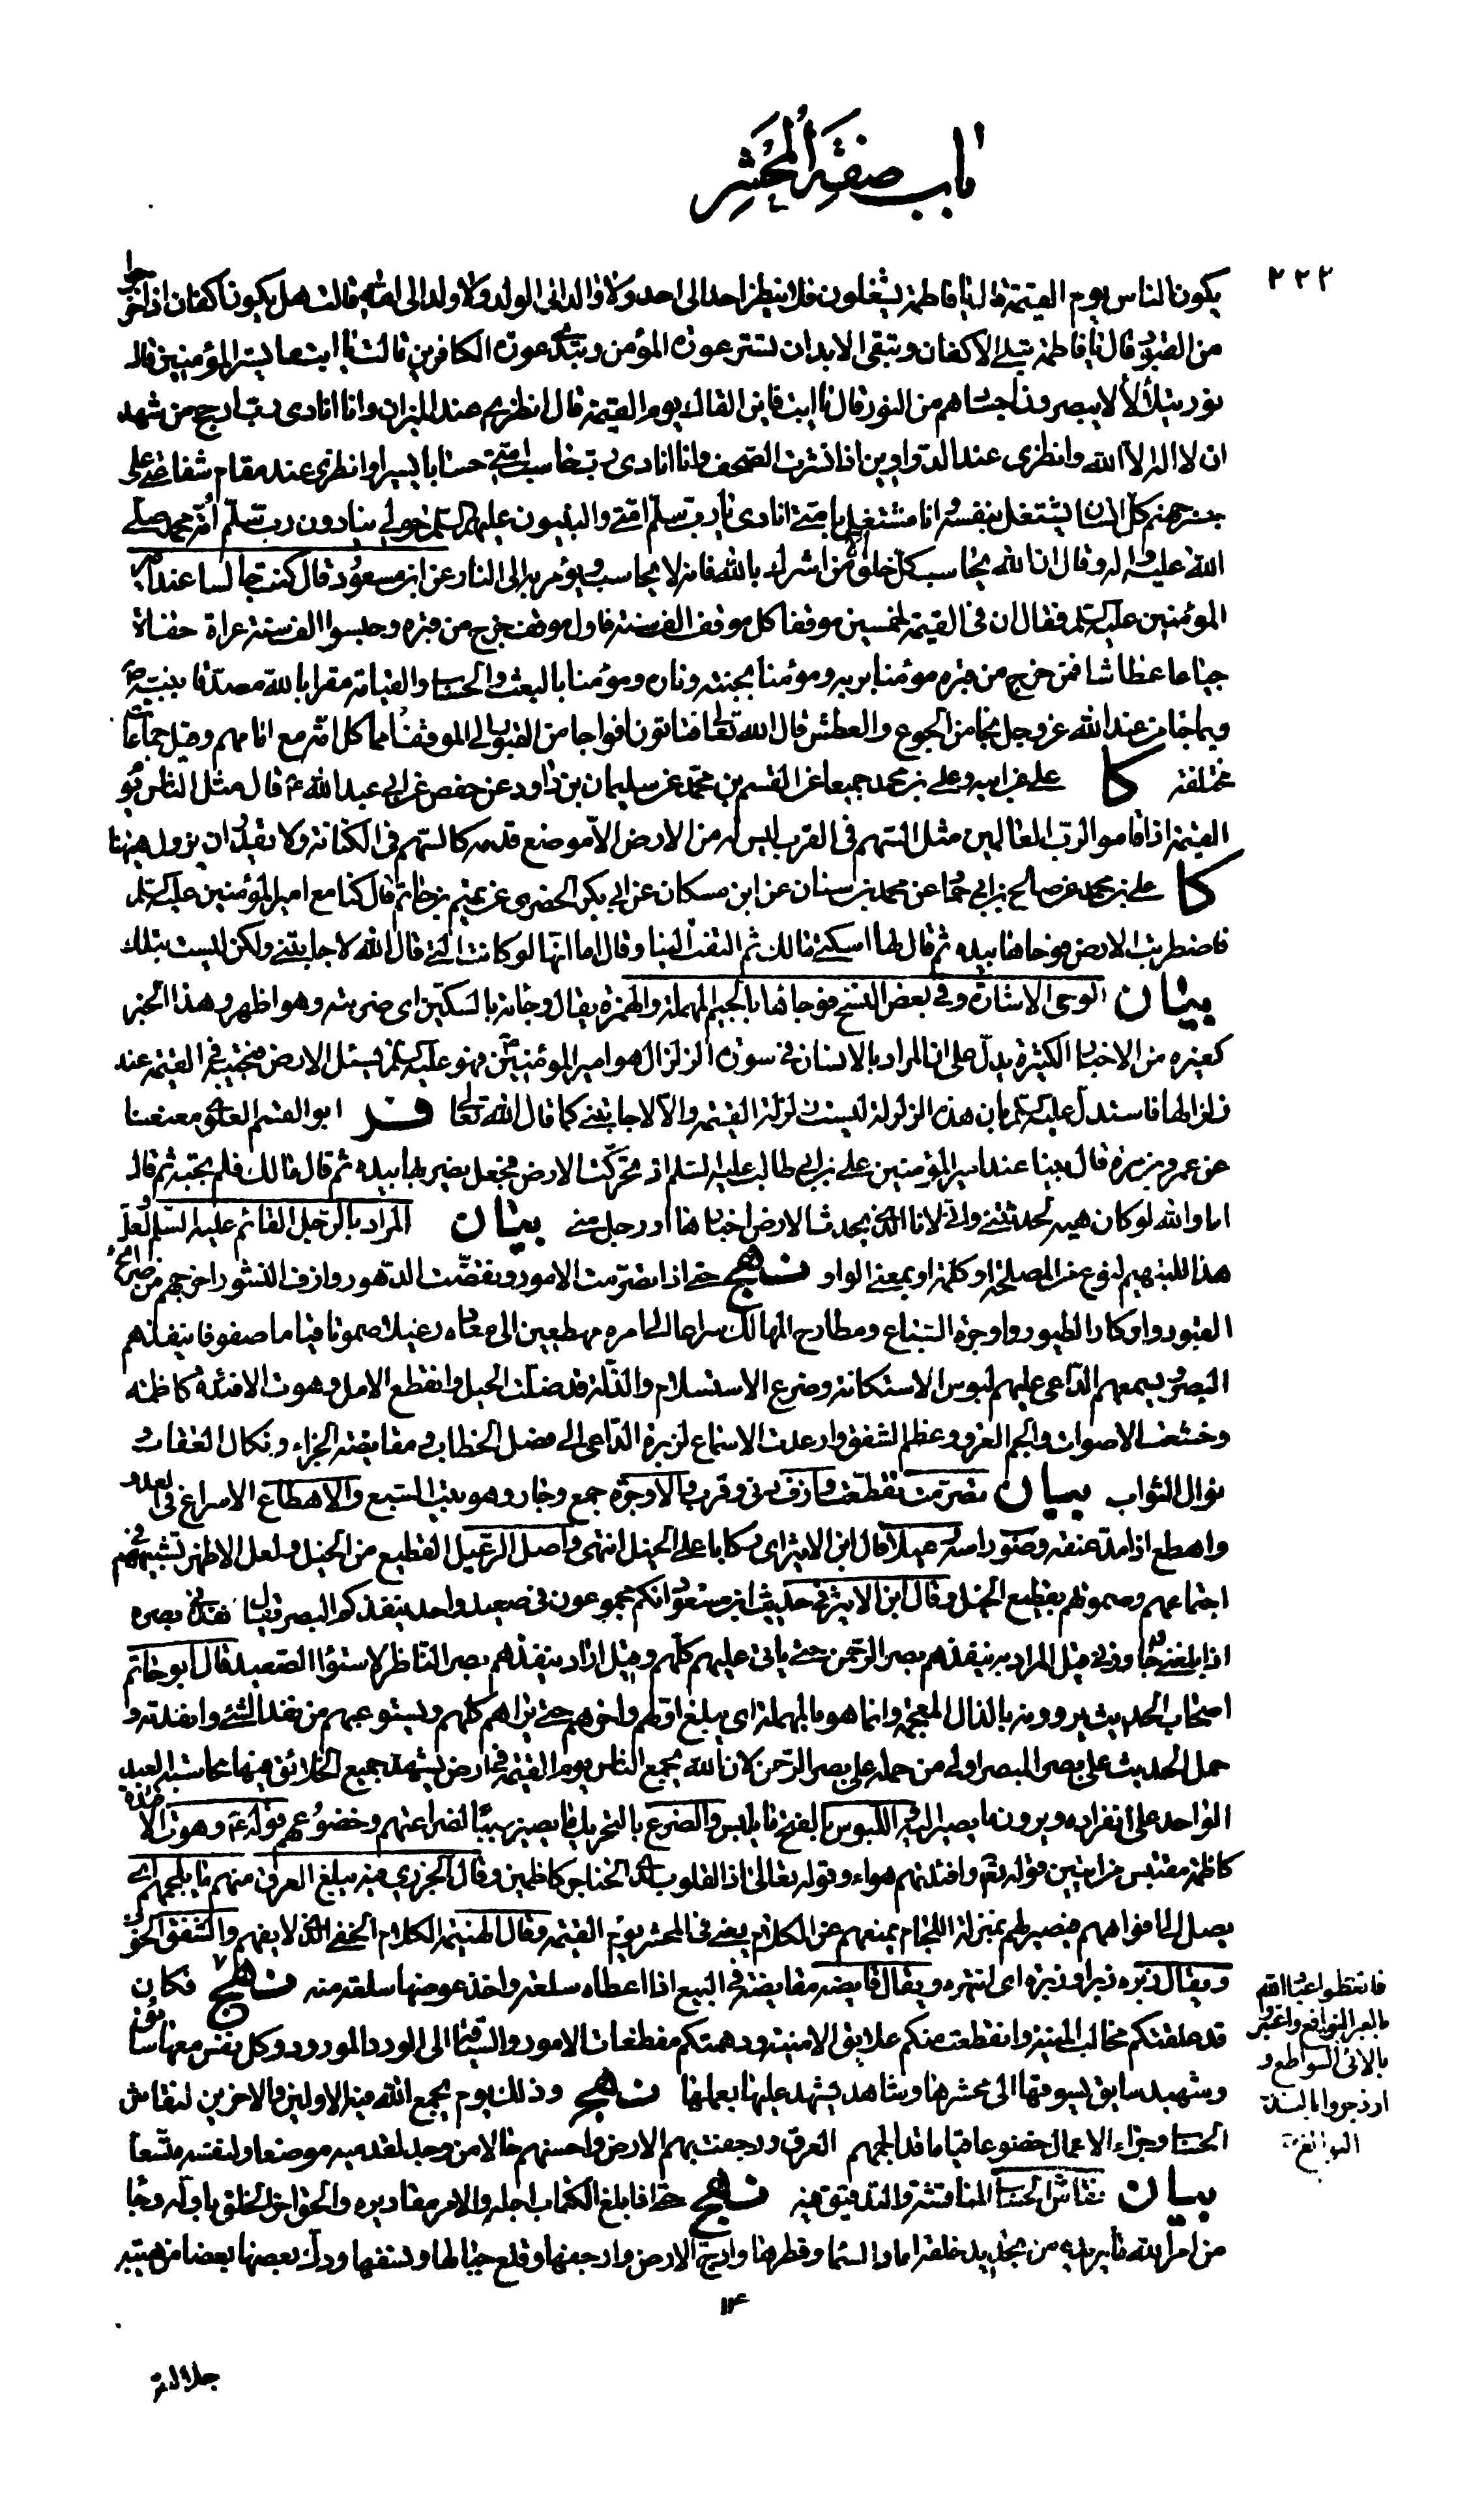 باب صفة المحشر
٢٢٢
يكون الناس يوم القيمة قال يا فاطمة يشغلون فلا ينظر احد الى احد ولا والد الى الولد ولا ولد الى امه قالت هل يكون اكفان اذا خرجوا
من القبور قال يا فاطمة تبلى الاكفان وتبقى الابدان تستر عورة المؤمن وتبدى عورة الكافرين قالت يا ابت ما يستر المؤمنين قال
نور يتلألأ لا يبصرون اجسادهم من النور قال يا ابت فاين القاك يوم القيمة قال انظرى عند الميزان وانا انادى رب ارجح من شهد
ان لا اله الا الله وانظرى عند الدواوين اذا نشرت الصحف وانا انادى رب حاسب امتى حسابا يسيرا وانظرى عند مقام شفاعتى على
جسر جهنم كل انسان يشتغل بنفسه وانا مشتغل بامتى انادى يا رب سلم امتى والنبيون عليهم السلم حولى ينادون رب سلم امة محمد صلى
الله عليه واله وقال ان الله يحاسب كل خلق الا من اشرك بالله فانه لا يحاسب ويؤمر به الى النار وعن ابن مسعود قال كنت جالسا عند امير
المؤمنين عليه السلم فقال ان فى القيمة لخمسين موقفا كل موقف الف سنة فاول موقف خرج من قبره وحبسوا الف سنة عراة حفاة
جياعا عطاشا فمن خرج من قبره مؤمنا بربه ومؤمنا بجنته وناره ومؤمنا بالبعث والحساب والقيامة مقرا بالله مصدقا بنبيه ص
وبما جاء من عند الله عز وجل نجا من الجوع والعطش قال الله تعالى فتاتون افواجا من القبور الى الموقف امما كل امة مع امامهم وقيل جماعات
مختلفة كا على عن ابيه وعلى بن محمد جميعا عن القسم بن محمد عن سليمان بن داود عن حفص عن ابى عبد الله ع قال مثل الناس يوم
القيمة اذا قاموا لرب العالمين مثل السهم فى القرب ليس له من الارض الا موضع قدمه كالسهم فى الكنانة ولا يقدر ان يزول هيهنا
كا على بن محمد عن صالح بن ابى حماد عن محمد بن سنان عن ابن مسكان عن ابى بكر الحضرمى عن تميم بن حاتم قال كنا مع امير المؤمنين عليه السلم
فاضطربت الارض فوحاها بيده ثم قال لها اسكنى مالك ثم التفت الينا وقال اما انها لو كانت التى قال الله لاجابتنى ولكن ليست بتلك
بيان الوحى الاشارة وفى بعض النسخ فوجاها بالجيم المهملة والهمزة يقال وجاته بالسكين اى ضربته وهو اظهر وهذا الخبر
كغيره من الاخبار الكثيرة يدل على ان المراد بالانسان فى سورة الزلزال هو امير المؤمنين ص فهو عليه السلم يسئل الارض فتجيبه فى القيمة عند
زلزالها فاستدل عليه السلم بان هذه الزلزلة ليست زلزلة القيمة والا لاجابتنى كما قال الله تعالى فر ابو القسم العلوى معنعنا
عن عمرو بن مرة قال بينا عند امير المؤمنين على بن ابى طالب عليه السلم اذ تحركت الارض فجعل يضربها بيده ثم قال مالك فلم تجبه ثم قال
اما والله لو كان هيه لحدثتنى وانى لانا الذى يحدث الارض اخبارها او رجل منى بيان المراد بالرجل القائم عليه السلم ولعل
هذا للتبهيم لنوع من المصلحة او كلمة او بمعنى الواو نهج حتى اذا تصرمت الامور وتقضت الدهور وازف النشور اخرجهم من ضرائح
القبور واوكار الطيور واوجرة السباع ومطارح المهالك سراعا الى امره مهطعين الى معاده رعيلا صموتا قياما صفوفا ينفذهم
البصر ويسمعهم الداعى عليهم لبوس الاستكانة وضرع الاستسلام والذلة قد ضلت الحيل وانقطع الامل وهوت الافئدة كاظمة
وخشعت الاصوات والجم العرق وعظم الشفق وارعدت الاسماع لزبرة الداعى الى فصل الخطاب ومقايضة الجزاء ونكال العقاب
نوال الثواب بيان تصرمت تقطعت وازف دنى وقرب والاوجرة جمع وجار وهو بيت السبع والاهطاع الاسراع فى العدو
واهطع اذا مد عنقه وصوب راسه رعيلا قال ابن الاثير اى ركابا على الخيل انتهى واصل الرعيل القطيع من الخيل ولعل الاظهر تشبيههم فى
اجتماعهم وصموتهم بقطيع الخيل وقال ابن الاثير فى حديث ابن مسعود انكم مجموعون فى صعيد واحد ينفذكم البصر يقال نفذنى بصره
اذا بلغنى وجاوزنى قيل المراد به ينفذهم بصر الرحمن حتى ياتى عليهم كلهم وقيل اراد ينفذهم بصر الناظر لاستواء الصعيد قال ابو حاتم
اصحاب الحديث يروونه بالذال المعجمة وانما هو بالمهملة اى يبلغ اولهم واخرهم حتى يراهم كلهم ويستوعبهم من نفد الشئ وانفدته و
حمل الحديث على بصر المبصر اولى من حمله على بصر الرحمن لان الله يجمع الناس يوم القيمة فى ارض يشهد جميع الخلائق فيها محاسبة العبد
الواحد على انفراده ويرون ما يصير اليه اللبوس بالفتح ما يلبس والضرع بالتحريك ما يصير سببا لضراعتهم وخضوعهم قوله ع وهوت الافئدة
كاظمة مقتبس من ايتين قوله تع وافئدتهم هواء وقوله تعالى اذ القلوب لدى الحناجر كاظمين وقال الجزرى فيه يبلغ العرق منهم ما يلجمهم اى
يصل الى افواههم فيصير لهم بمنزلة اللجام يمنعهم عن الكلام يعنى فى المحشر يوم القيمة وقال الهينمة الكلام الخفى الذى لا يفهم والشفق الخوف
ويقال زبره زبرا وزبرة اى انتهره ويقال قايضه مقايضة فى البيع اذا اعطاه سلعة واخذ عوضها سلعة منه نهج فكان
قد علقتكم مخالب المنية وانقطعت منكم علايق الامنية ودهمتكم مفظعات الامور والسياقة الى الورد المورود وكل نفس معها سائق
وشهيد سايق يسوقها الى محشرها وشاهد يشهد عليها بعملها نهج وذلك يوم يجمع الله فيه الاولين والاخرين لنقاش
الحساب وجزاء الاعمال خضوعا قياما قد الجمهم العرق ورجفت بهم الارض واحسنهم حالا من وجد لقدميه موضعا ولنفسه متسعا
بيان نقاش الحساب المناقشة والتدقيق فيه نهج حتى اذا بلغ الكتاب اجله والامر مقاديره والحق اخر الخلق باوله وجاء
من امر الله ما يريده من تجديد خلقه اماد السماء وفطرها وارج الارض وارجفها وقلع جبالها ونسفها ودك بعضها بعضا من هيبة
فاتعظوا عباد الله
بالعبر النوافع واعتبروا
بالاى السواطع و
ازدجروا بالنذر
البوالغ
١٤
جلالته